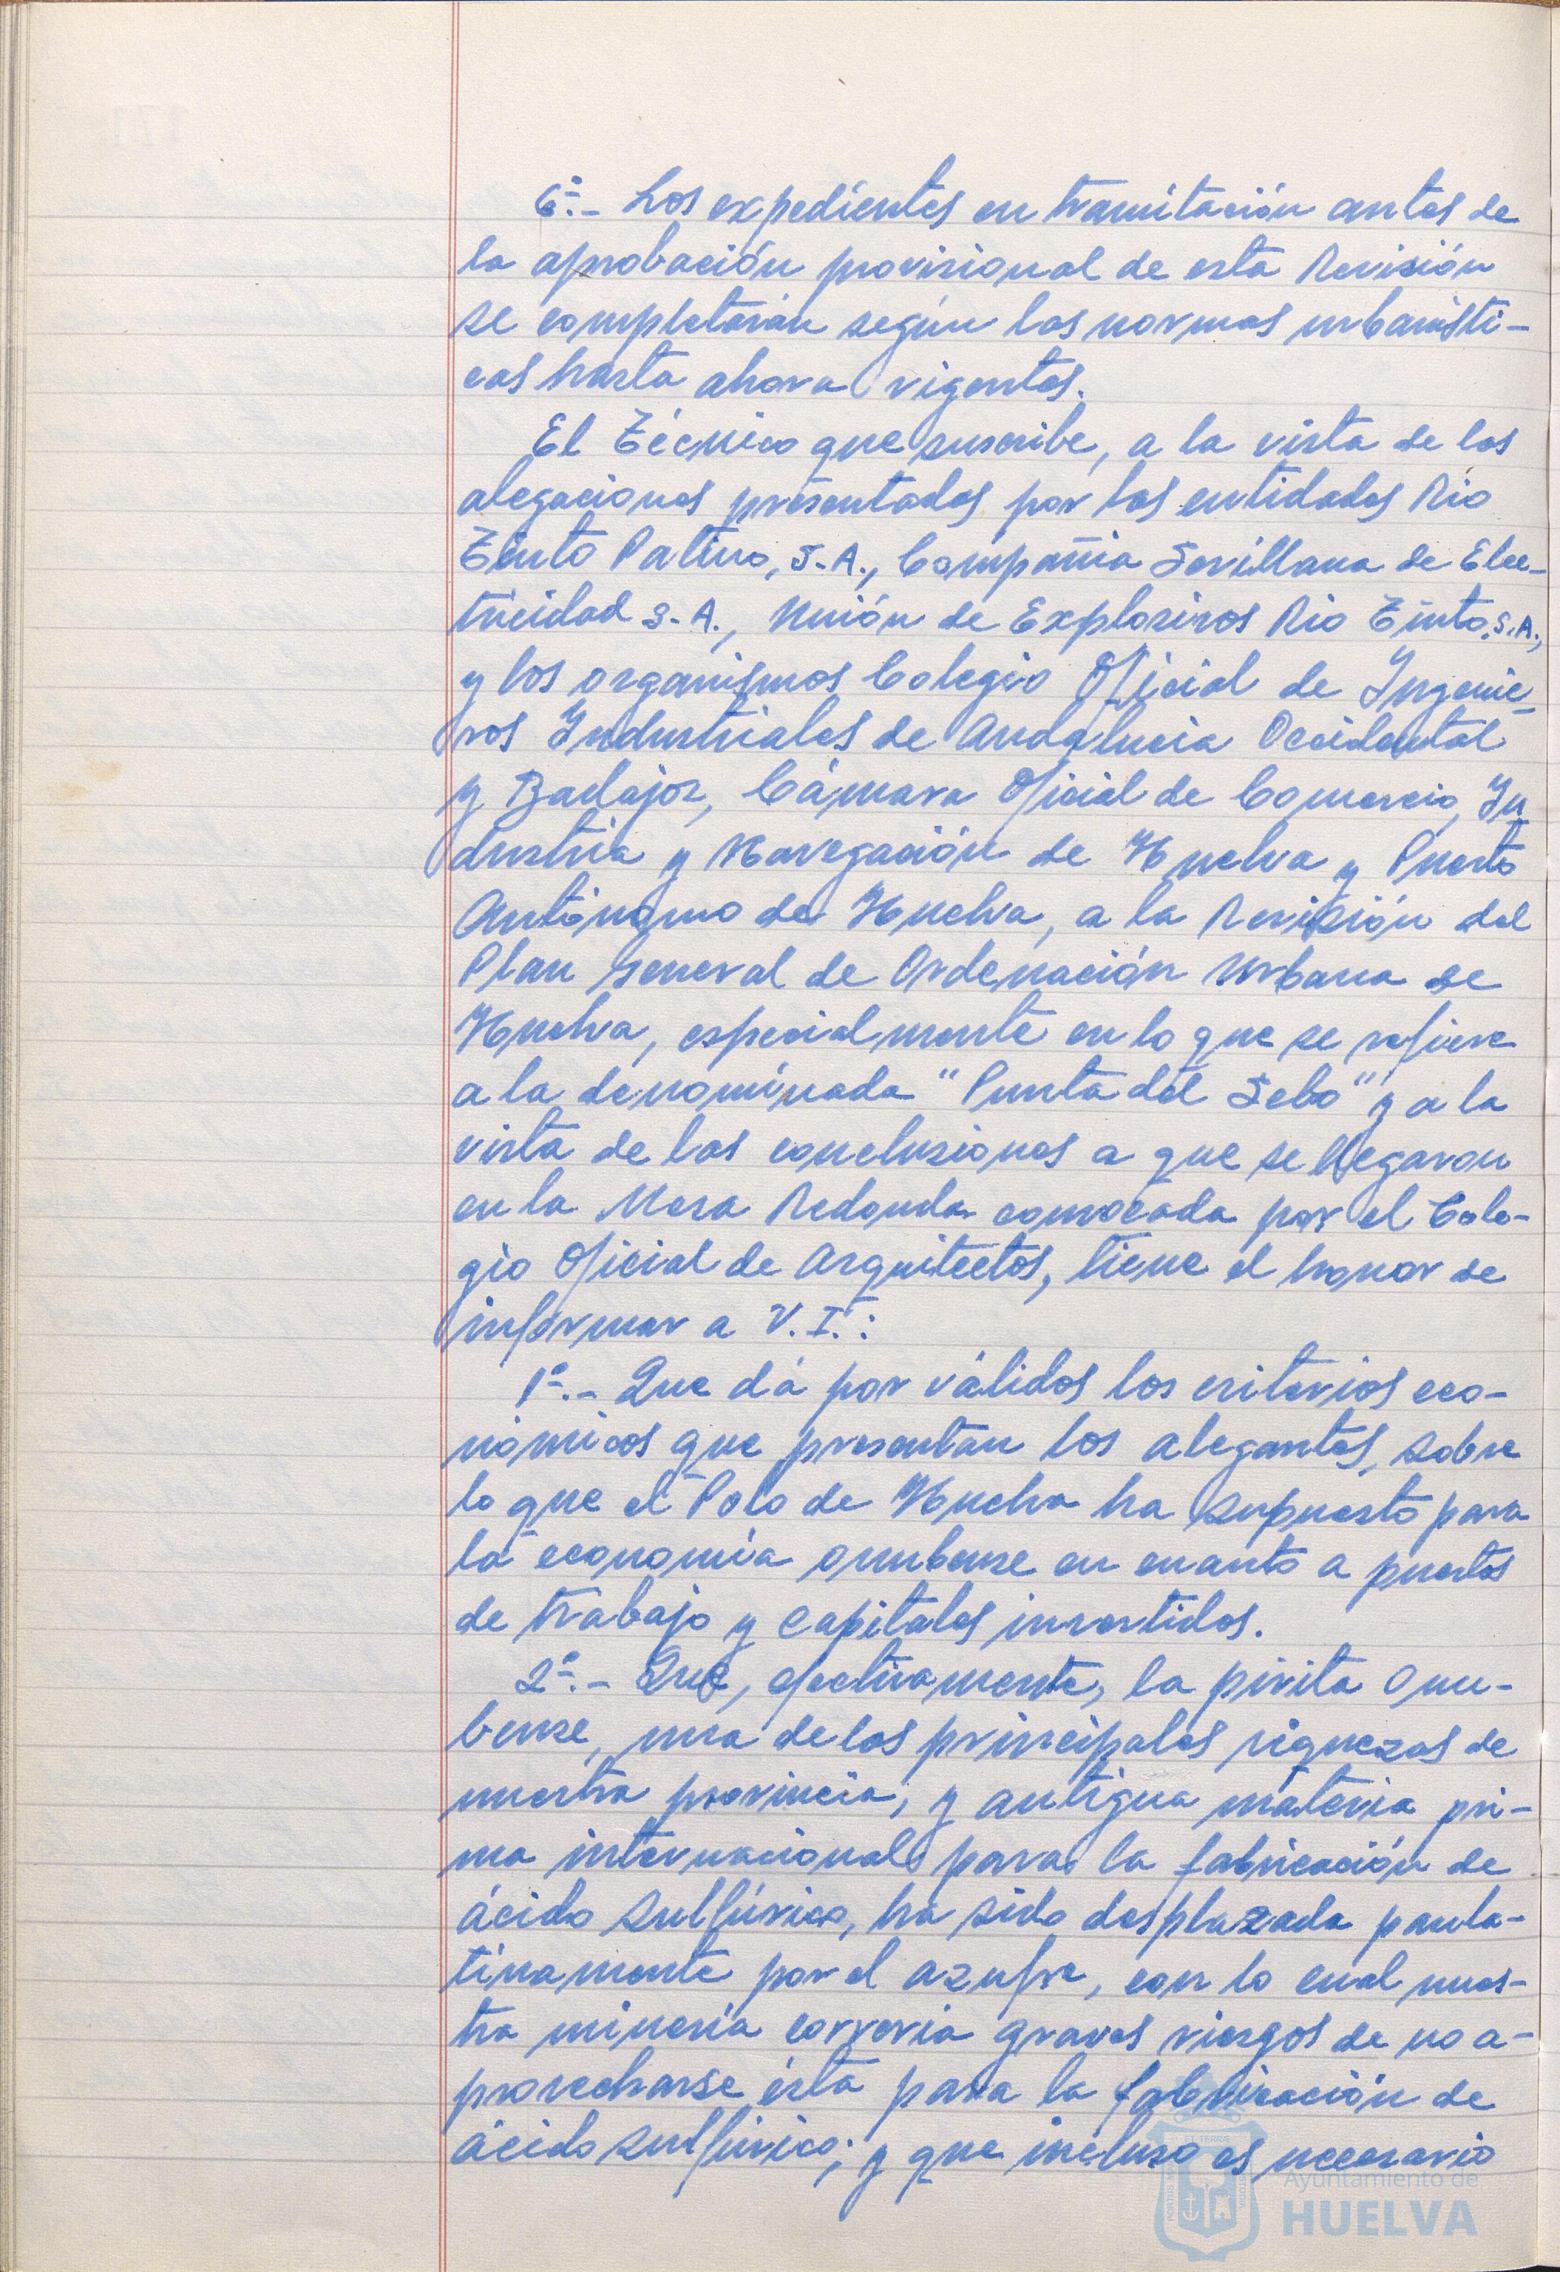 6º.- Los expedientes en tramitación antes de
la aprobación provisional de esta Revisión
se completarán según las normas urbanísti-
cas hasta ahora vigentes.
El Técnico que suscribe, a la vista de las
alegaciones presentadas por las entidades Rio
Tinto Patiño, S.A., Compañia Sevillana de Elec-
tricidad S.A., Unión de Explosivos Rio Tinto, S.A.,
y los organismos Colegio Oficial de Ingenie-
ros Industriales de Andalucia Occidental
y Badajoz, Cámara Oficial de Comercio, In
dustria y Navegación de Huelva y Puerto
Autónomo de Huelva, a la Revisión del
Plan General de Ordenación Urbana de
Huelva, especialmente en lo que se refiere
a la denominada "Punta del Sebo" y a la
vista de las conclusiones a que se llegaron
en la Mesa Redonda convocada por el Cole-
gio Oficial de Arquitectos, tiene el honor de
informar a V.I.:
1º.- Que dá por válidos los criterios eco-
nómicos que presentan los alegantes, sobre
lo que el Polo de Huelva ha supuesto para
la economía onubense en cuanto a puestos
de trabajo y capitales invertidos.
2º.- Que, efectivamente, la pirita onu-
bense, una de las principales riquezas de
nuestra provincia, y antigua materia pri-
ma internacional para la fabricación de
ácido sulfúrico, ha sido desplazada paula-
tinamente por el azufre, con lo cual nues-
tra minería correria graves riesgos de no a-
provecharse ésta para la fabricación de
ácido sulfúrico; y que incluso es necesario
Ayuntamiento de
HUELVA